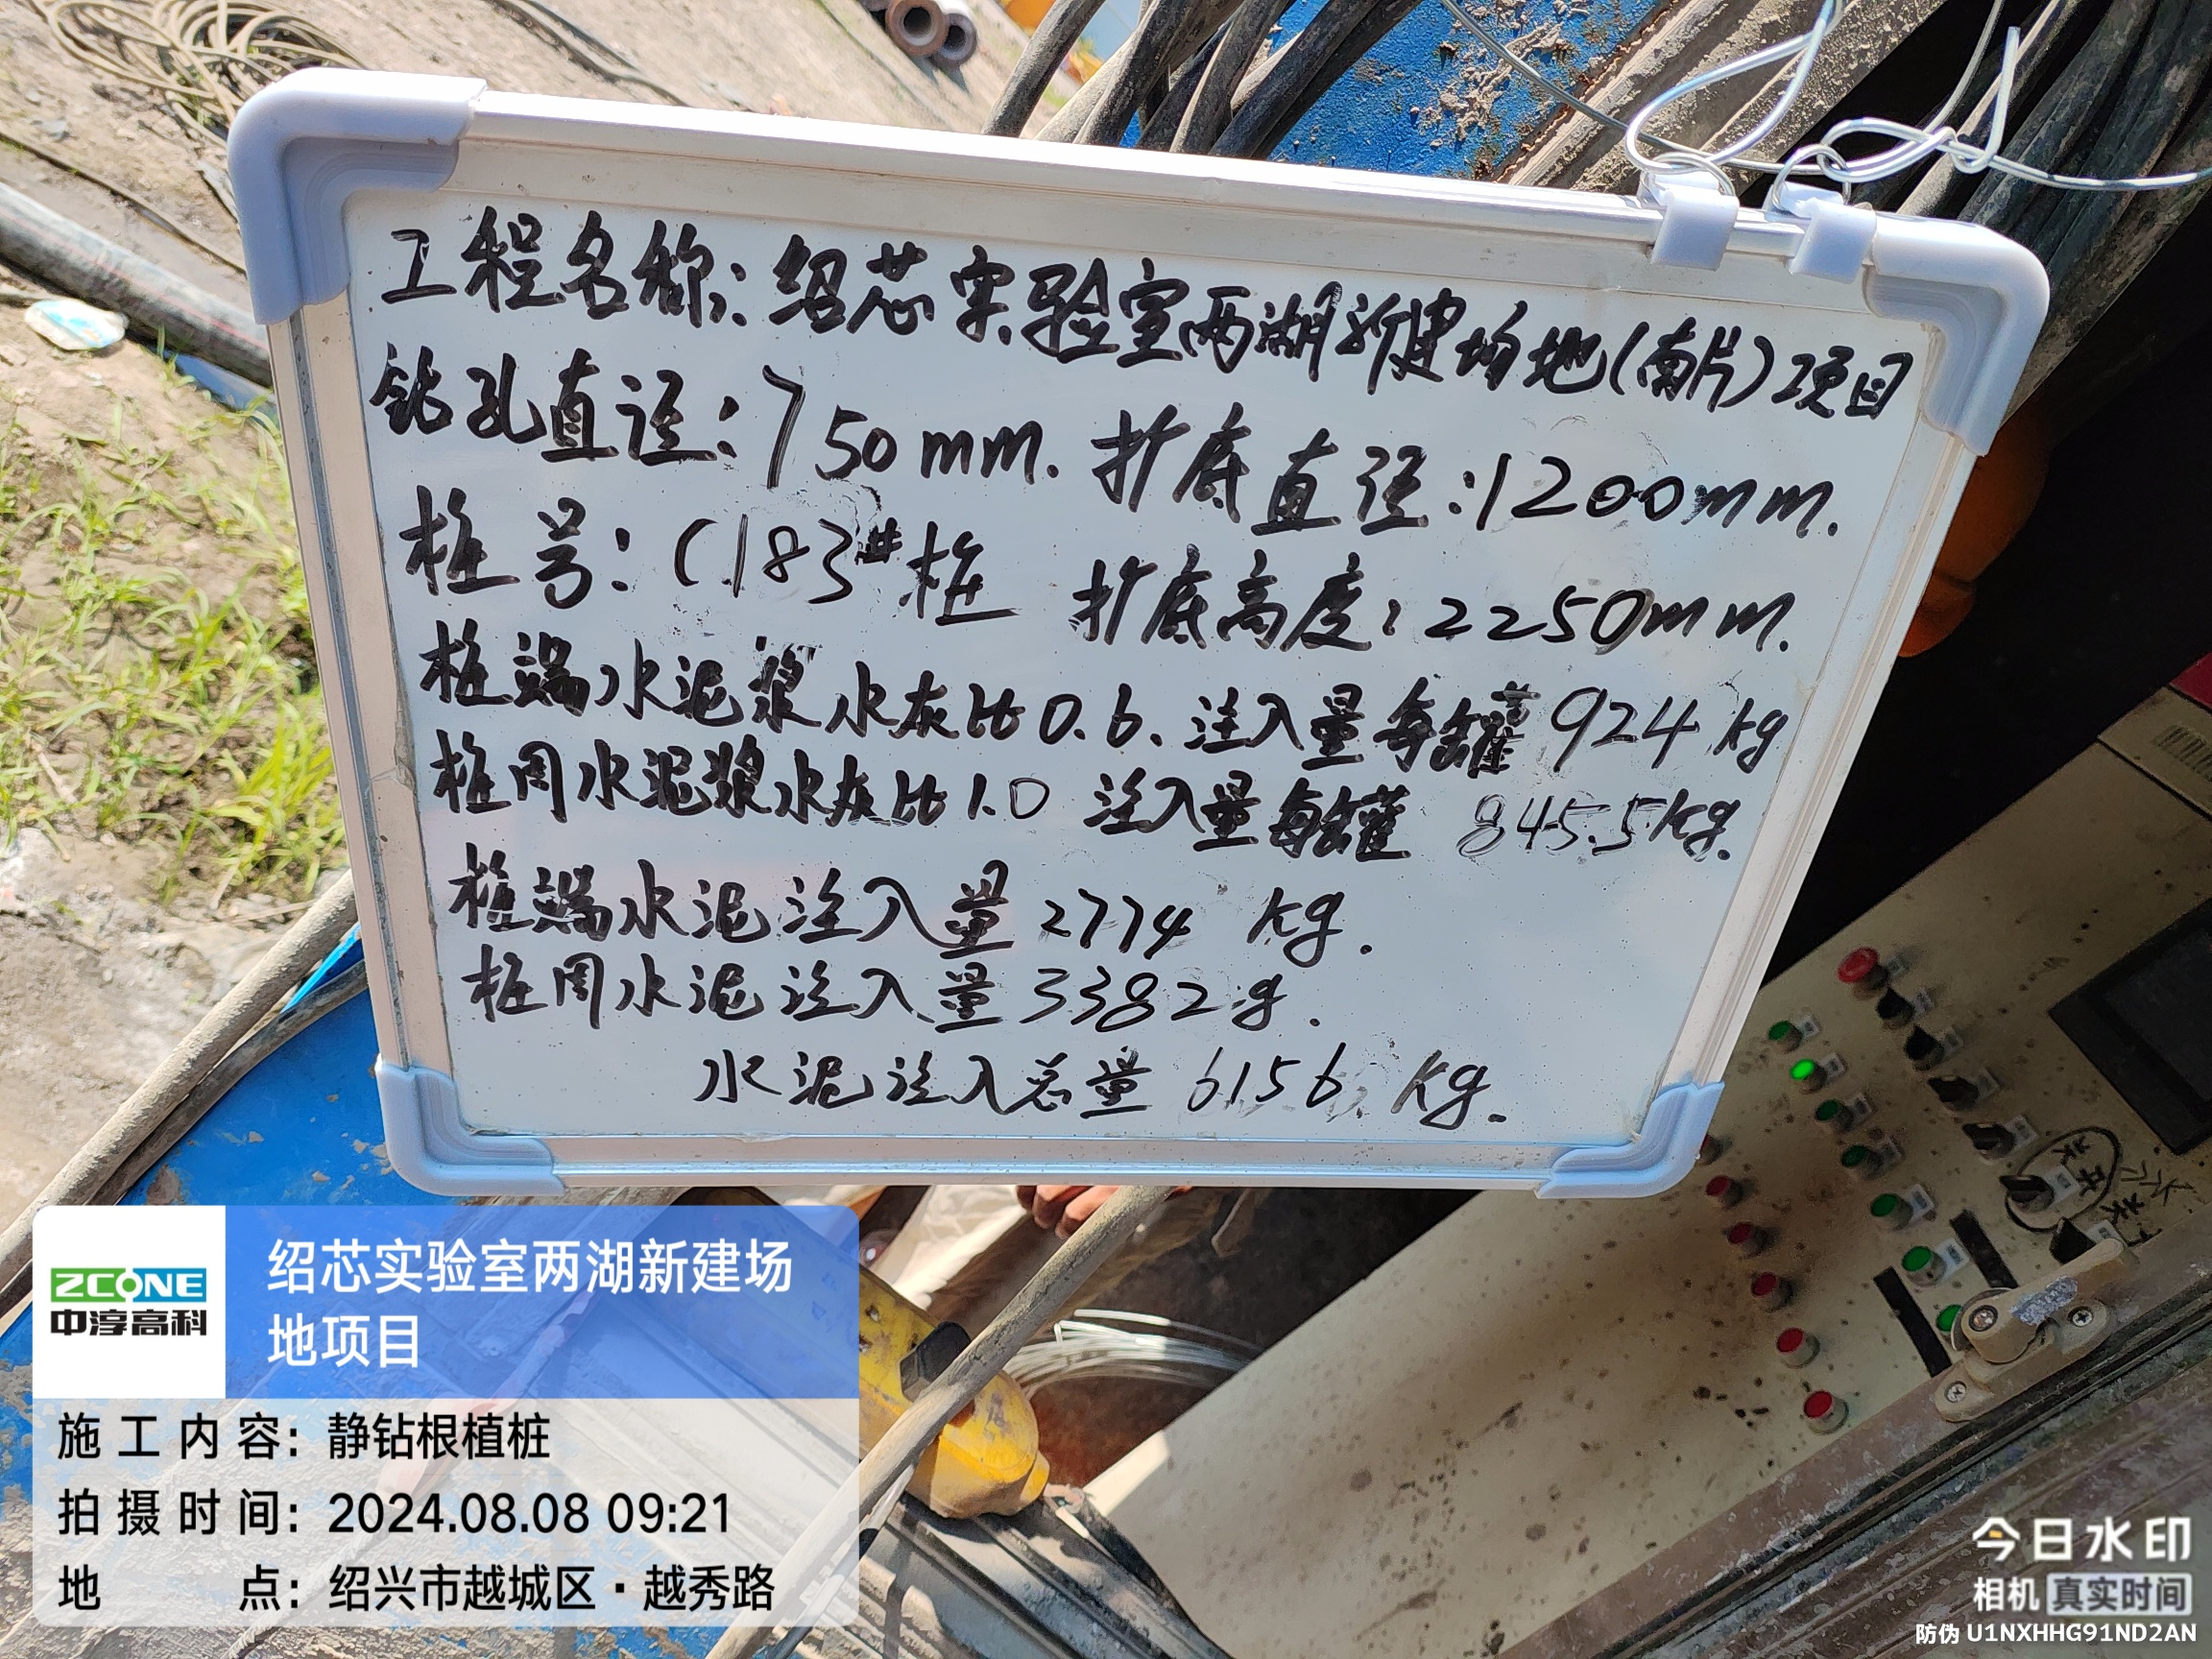 工程名称:绍芯实验室两湖新建场地(南片)项目
钻孔直径:750mm. 扩底直径:1200mm.
桩号:C183#桩 扩底高度:2250mm.
桩端水泥浆水灰比0.6.注入量每罐924kg
桩周水泥浆水灰比1.0 注入量每罐 845.5kg.
桩端水泥注入量2774 kg.
桩周水泥注入量3382g.
水泥注入总量6156 kg.
ZCONE
中淳高科
绍芯实验室两湖新建场
地项目
施工内容:静钻根植桩
拍摄时间:2024.08.08 09:21
地点:绍兴市越城区·越秀路
今日水印
相机 真实时间
防伪 U1NXHHG91ND2AN